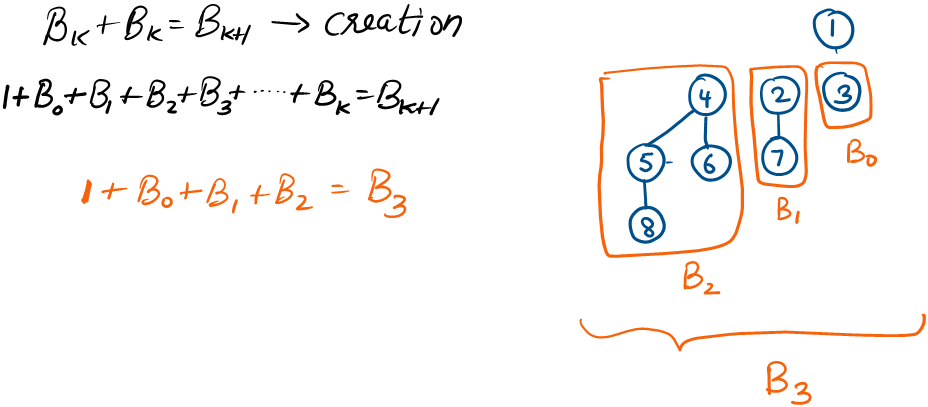 Bₖ + Bₖ = Bₖ₊₁ → creation
1 + B₀ + B₁ + B₂ + B₃ + ⋯⋯ + Bₖ = Bₖ₊₁
1 + B₀ + B₁ + B₂ = B₃
1
4 2 3
5 6 7 B₀
8 B₁
B₂
B₃